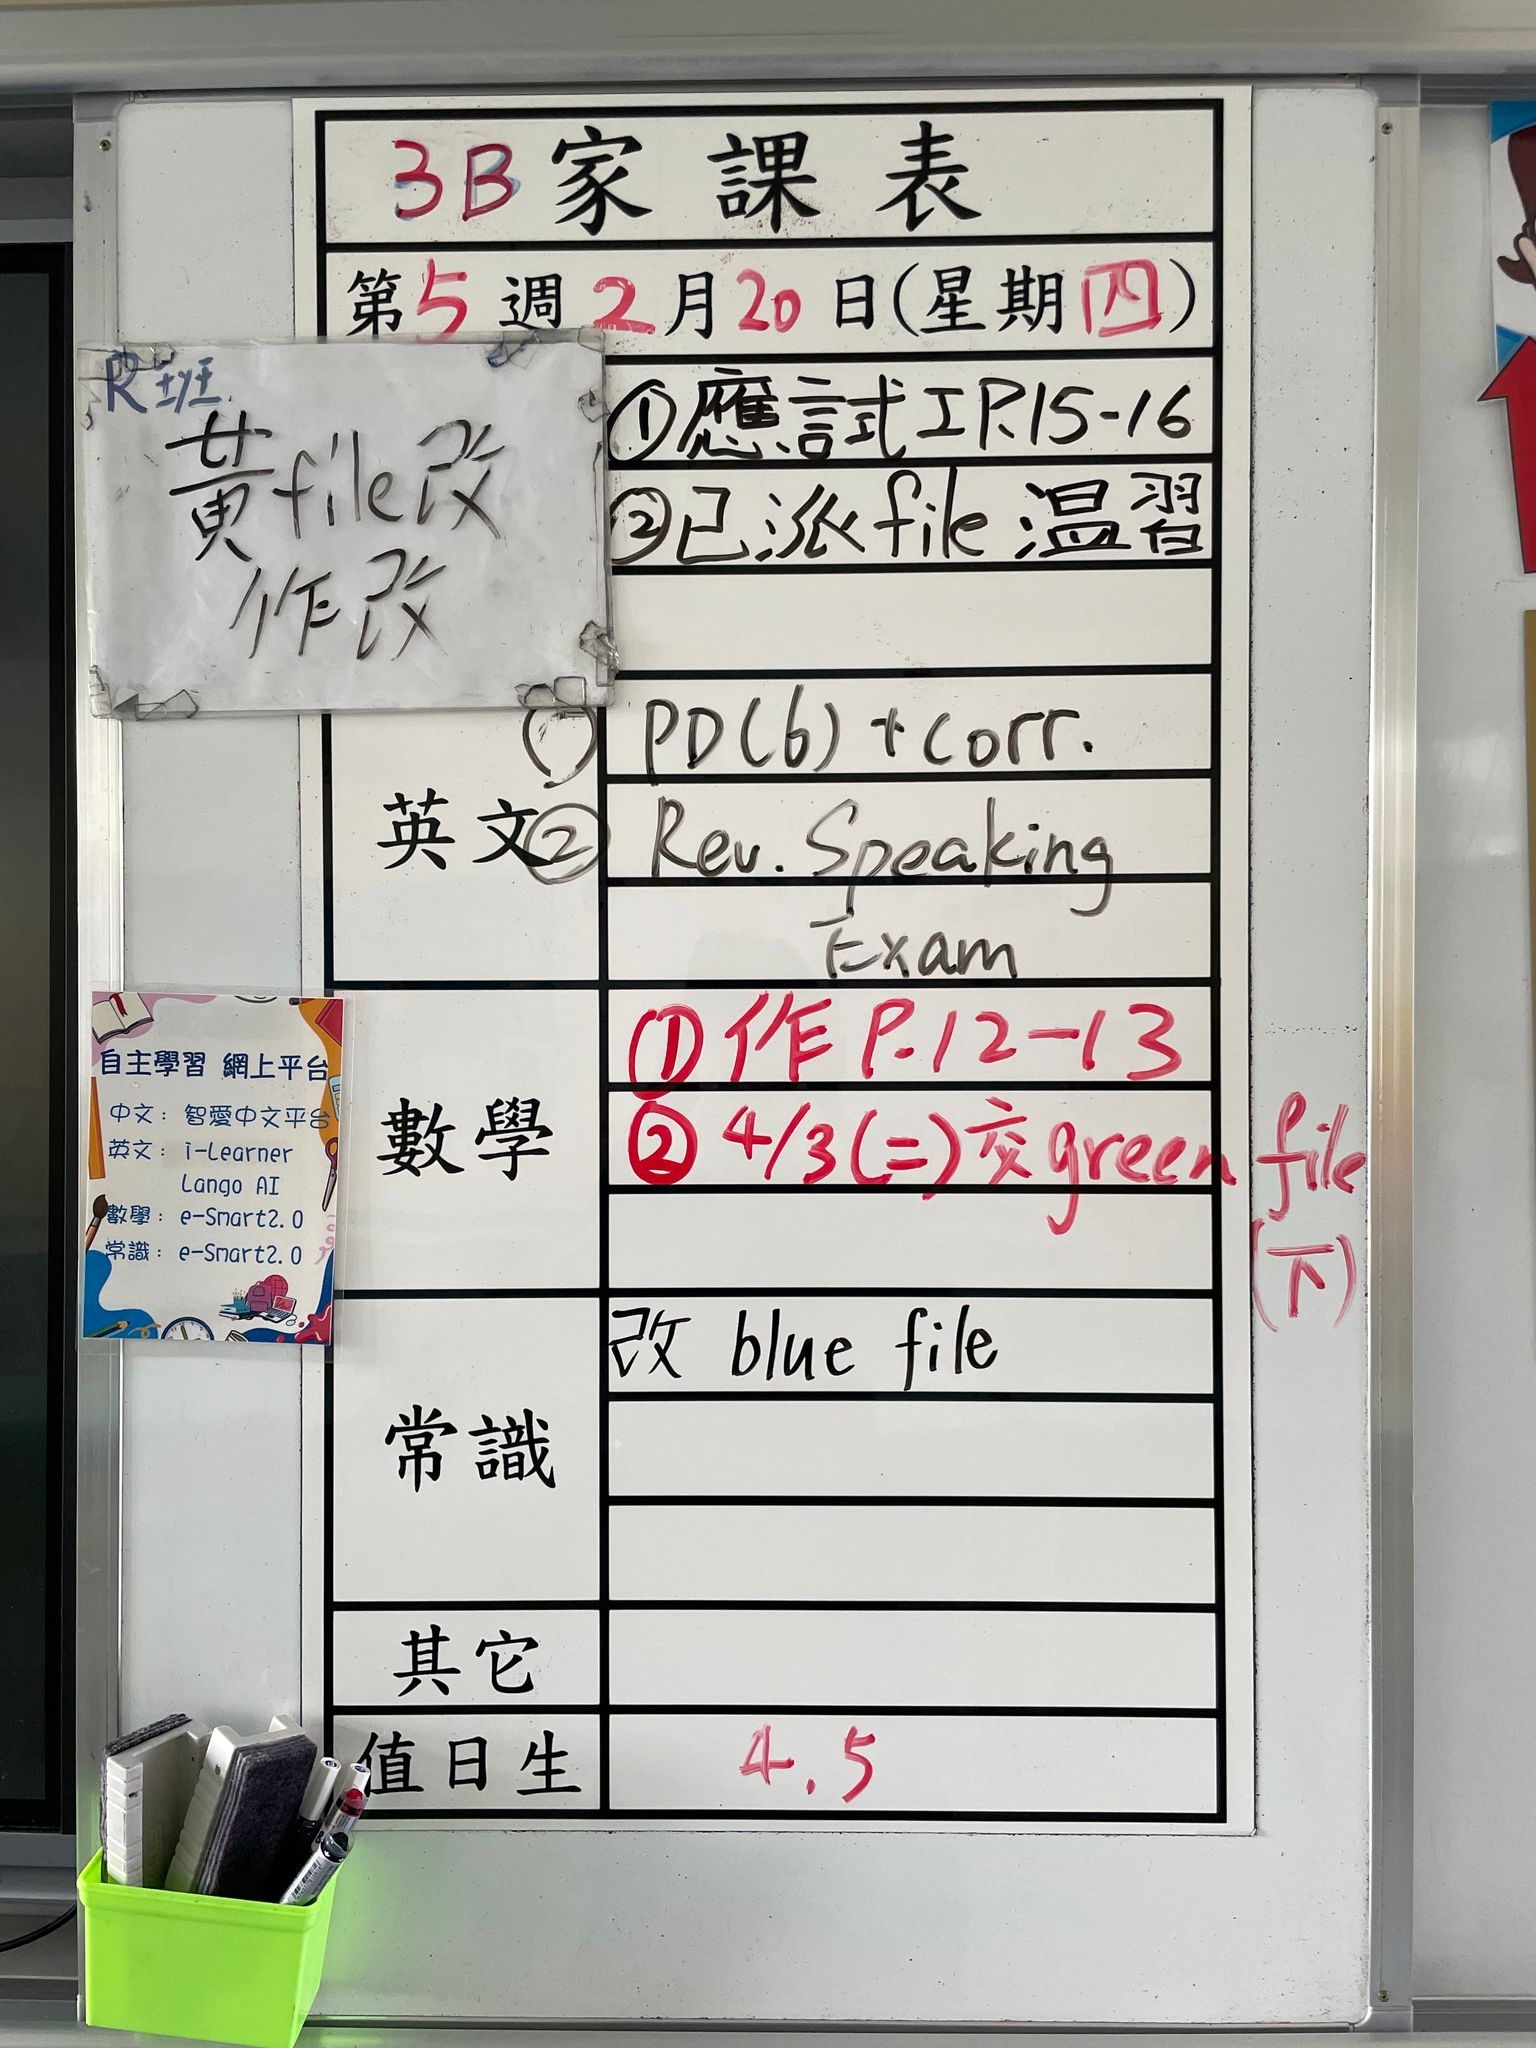 3B家課表
第5週2月20日(星期四)
R班
黃file改
作改
①應試工P.15-16
②已派file溫習
英文
① PD(6)+corr.
② Rev. Speaking
Exam
數學
①作P.12-13
②4/3(二)交green file
(下)
自主學習 網上平台
中文：智愛中文平台
英文：i-Learner
Lango AI
數學：e-Smart2.0
常識：e-Smart2.0
常識
改 blue file
其它
值日生
4.5